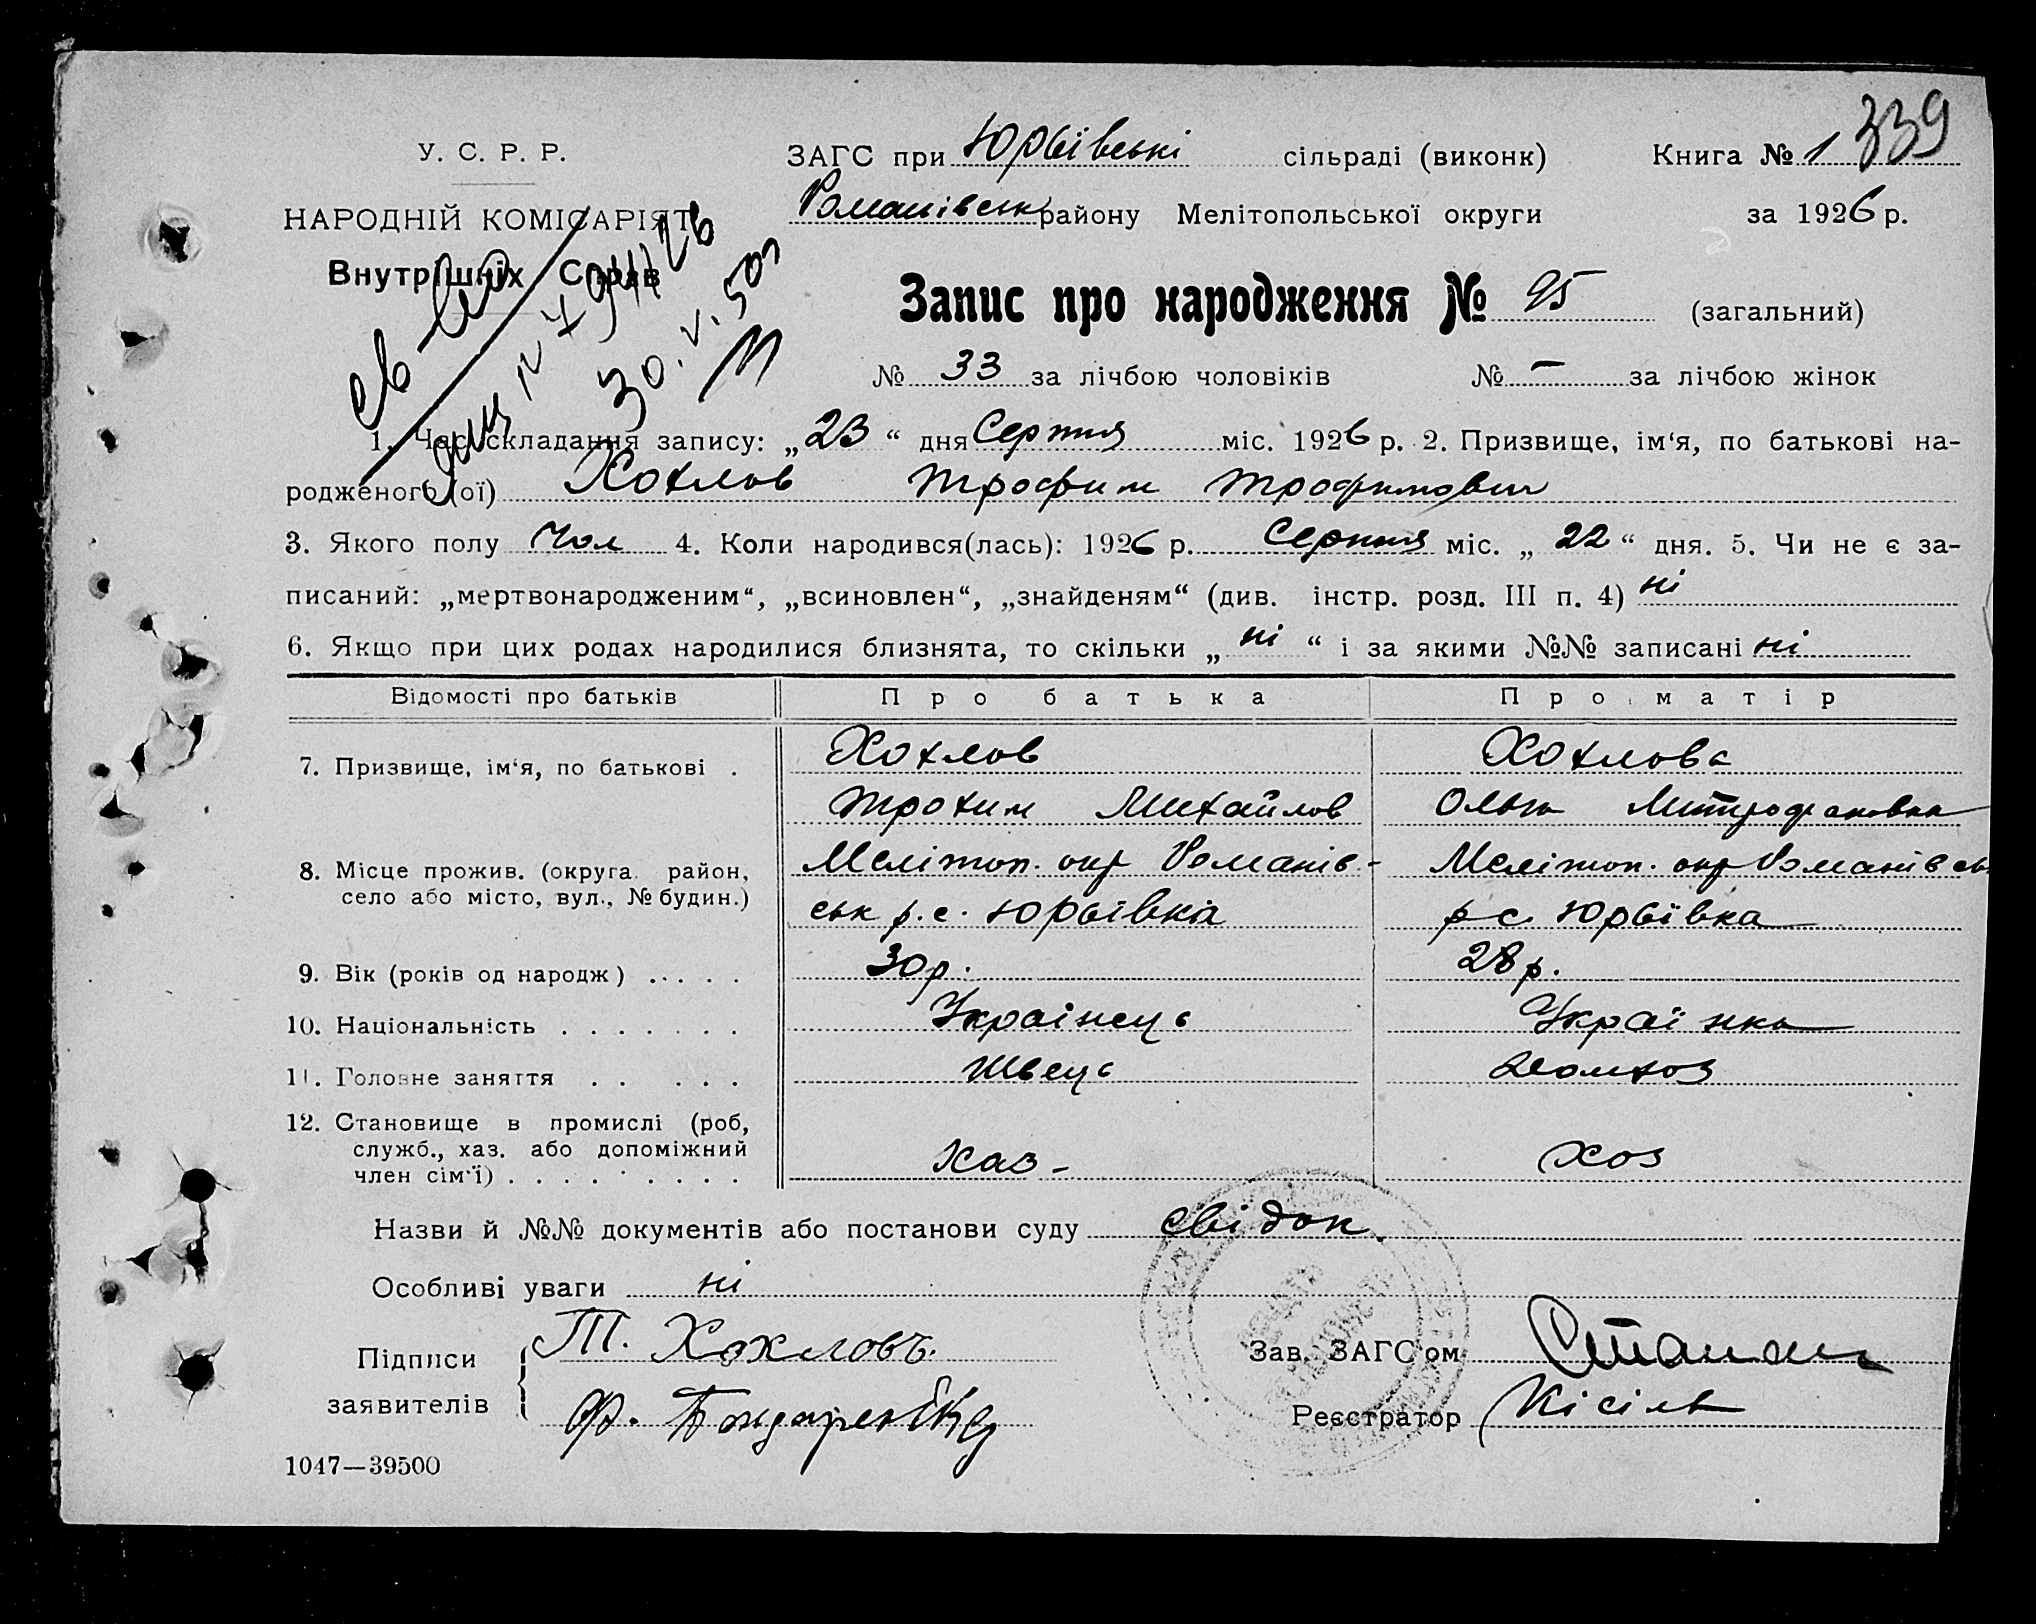 339
У. С. Р. Р.
ЗАГС при Юрьївські сільраді (виконк) Книга № 1
НАРОДНІЙ КОМІСАРІЯТ
Романівськ району Мелітопольської округи за 1926 р.
Внутрішніх Справ
30.V.50
Запис про народження № 95 (загальний)
№ 33 за лічбою чоловіків № — за лічбою жінок
1. Час складання запису: „23“ дня Серпня міс. 1926 р. 2. Призвище, ім‘я, по батькові на-
родженого (ої) Хохлов Трофим Трофимович
3. Якого полу Чол 4. Коли народився(лась): 1926 р. Серпня міс. „22“ дня. 5. Чи не є за-
писаний: „мертвонародженим“, „всиновлен“, „знайденям“ (див. інстр. розд. III п. 4) ні
6. Якщо при цих родах народилися близнята, то скільки „ні“ і за якими №№ записані ні
Відомості про батьків Про батька Про матір
7. Призвище, ім‘я, по батькові . Хохлов Хохлова
Трохим Михайлов Ольга Митрофановна
8. Місце прожив. (округа район, Мелітоп. окр Романів- Мелітоп. окр Романівськ
село або місто, вул., № будин.) ськ р. с. Юрьївка р с. Юрьївка
9. Вік (років од народж) . . . . 30 р. 28 р.
10. Національність . . . . . . . Українець Українка
11. Головне заняття . . . . . Швець Домхоз
12. Становище в промислі (роб,
служб., хаз. або допоміжний
член сім‘ї) . . . . . . . . Хаз- Хоз
Назви й №№ документів або постанови суду свідок.
Особливі уваги ні
Підписи Т. Хохловъ. Зав. ЗАГСом
заявителів Ф. Бондаренко Реєстратор Кісіль
1047—39500